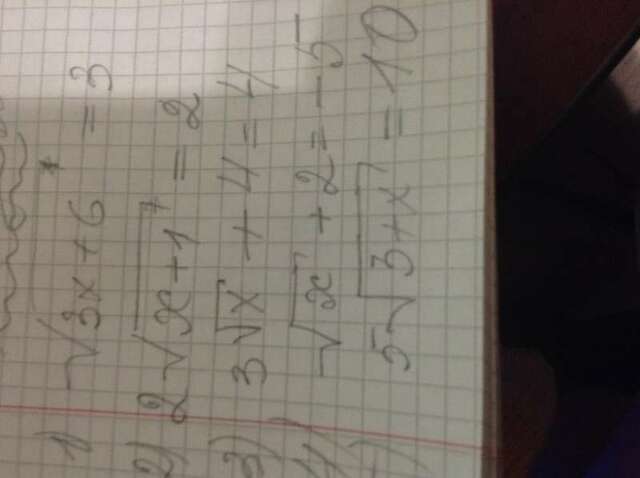 1) √3x+6 = 3
2) 2√x+1 = 2
3) 3√x + 4 = 4
4) √x + 2 = -5
5√3+x = 10